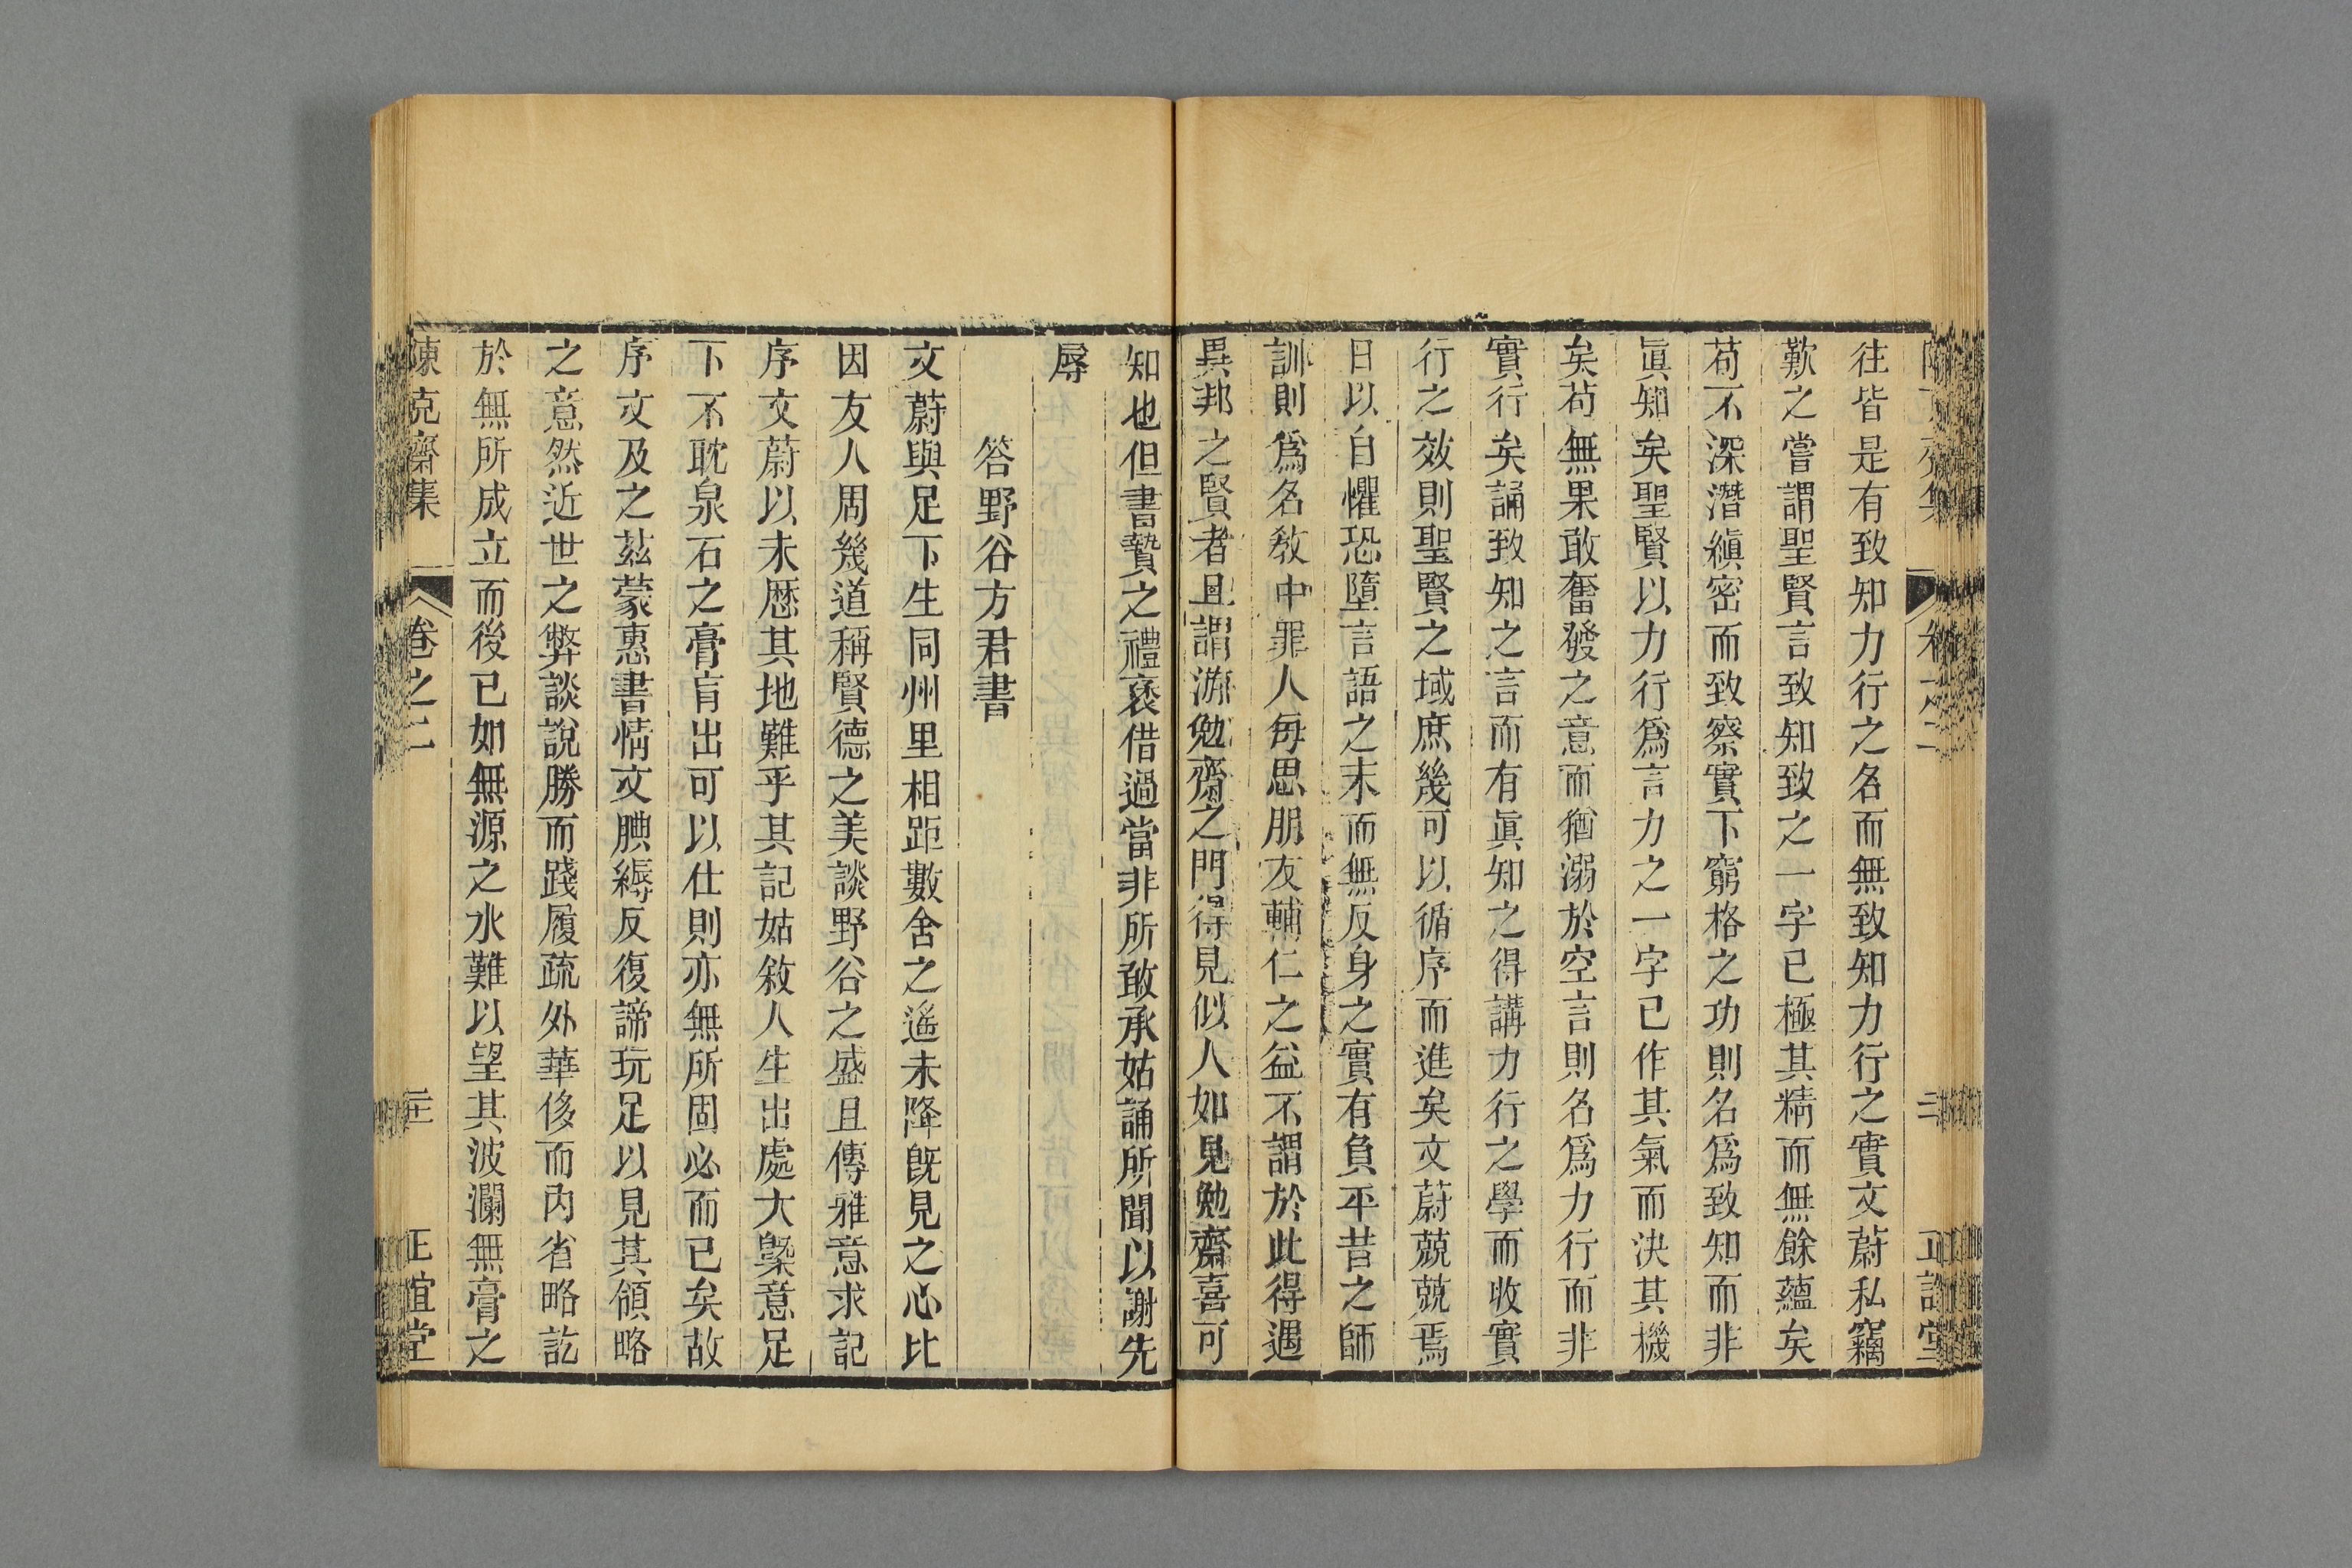 往皆是有致知力行之名而無致知力行之實文蔚私竊
歎之嘗謂聖賢言致知致之一字已極其精而無餘蘊矣
苟不深潛縝密而致察實下窮格之功則名爲致知而非
眞知矣聖賢以力行爲言力之一字已作其氣而決其機
矣苟無果敢奮發之意而猶溺於空言則名爲力行而非
實行矣誦致知之言而有眞知之得講力行之學而收實
行之效則聖賢之域庶幾可以循序而進矣文蔚兢兢焉
日以自懼恐墮言語之末而無反身之實有負平昔之師
訓則爲名敎中罪人每思朋友輔仁之益不謂於此得遇
異邦之賢者且謂游勉齋之門得見似人如見勉齋喜可
知也但書贄之禮褒借過當非所敢承姑誦所聞以謝先
辱
答野谷方君書
文蔚與足下生同州里相距數舍之遙未降旣見之心比
因友人周幾道稱賢德之美談野谷之盛且傳雅意求記
序文蔚以未歷其地難乎其記姑敘人生出處大槩意足
下不耽泉石之膏肓出可以仕則亦無所固必而已矣故
序文及之茲蒙惠書情文腆縟反復諦玩足以見其領略
之意然近世之弊談說勝而踐履疏外華侈而內省略訖
於無所成立而後已如無源之水難以望其波瀾無膏之
陳克齋集 卷之二 正誼堂